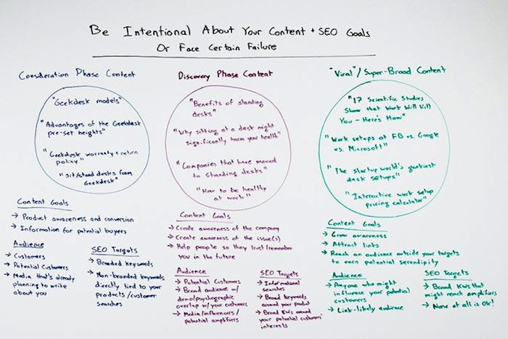 Be Intentional About Your Content + SEO Goals
Or Face Certain Failure
Consideration Phase Content
"Geekdesk models"
"Advantages of the Geekdesk
pre-set heights"
"Geekdesk warranty + return
policy"
"Sit/stand desks from
Geekdesk"
Content Goals
→ Product awareness and conversion
→ Information for potential buyers
Audience
→ Customers
→ Potential Customers
→ Media that's already
planning to write
about you
SEO Targets
→ Branded keywords
→ Non-branded keywords
directly tied to your
products/customer
searches
Discovery Phase Content
"Benefits of standing
desks"
"Why sitting at a desk might
significantly harm your health"
"Companies that have moved
to standing desks"
"How to be healthy
at work"
Content Goals
→ Create awareness of the company
→ Create awareness of the issue(s)
→ Help people so they trust/remember
you in the future
Audience
→ Potential Customers
→ Broad audience w/
demo/psychographic
overlap w/ your customers
→ Media/influencers/
potential amplifiers
SEO Targets
→ Informational
searches
→ Broad keywords
around your product
→ Broad KWs around
your potential customers'
interests
"Viral"/Super-Broad Content
"17 Scientific Studies
Show that Work Will Kill
You - Here's How"
"Work setups at FB vs. Google
vs. Microsoft"
"The startup world's
desk setups"
"Interactive work setup
pricing calculator"
Content Goals
→ Grow awareness
→ Attract links
→ Reach an audience outside your targets
to earn potential serendipity
Audience
→ Anyone who might
influence your potential
customers
→ Link-likely audience
SEO Targets
→ Broad KWs that
might reach amplifiers
→ None at all is OK!